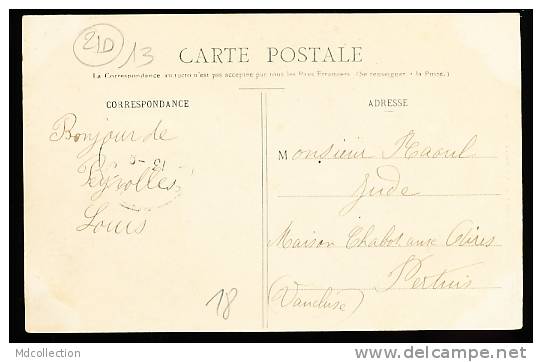 21D 13
CARTE POSTALE
La Correspondance au recto n'est pas acceptée par tous les Pays Etrangers. (Se renseigner à la Poste.)
CORRESPONDANCE
Bonjour de
Peyrolles
Louis
18
ADRESSE
Monsieur Raoul
Jude
Maison Chabot aux Aires
Pertuis
(Vaucluse)
Mdcollection
www.delcampe.net